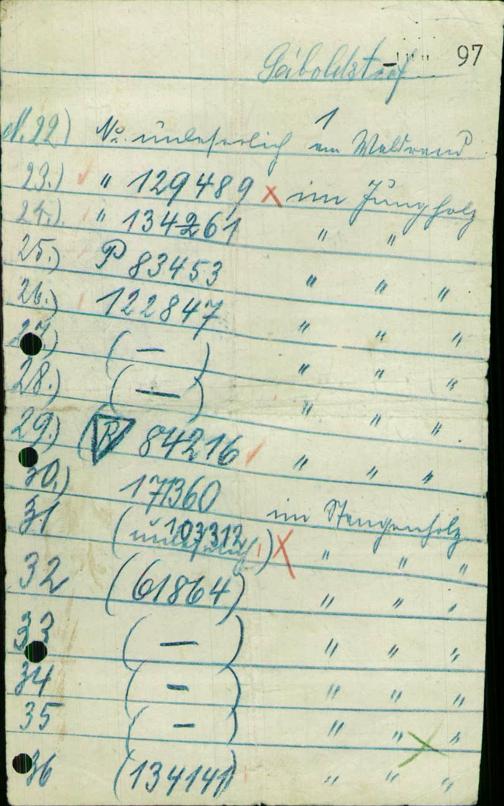 97
Seiboldstorf
1
N. 22) No. unleserlich am Waldrand
23.) " 129489 x im Jungholz
24.) " 134261 " "
25.) P 83453 " " "
26.) 122847 " " "
27.) ( — ) " " "
28.) ( — ) " " "
29.) (R) 84216 " " "
30.) 171360 im Stangenholz
31 (unleserlich) 103312 x " "
32 (61864) " " "
33 ( — ) " " "
34 ( - ) " " "
35 ( - ) " " "
36 (134141) " " "